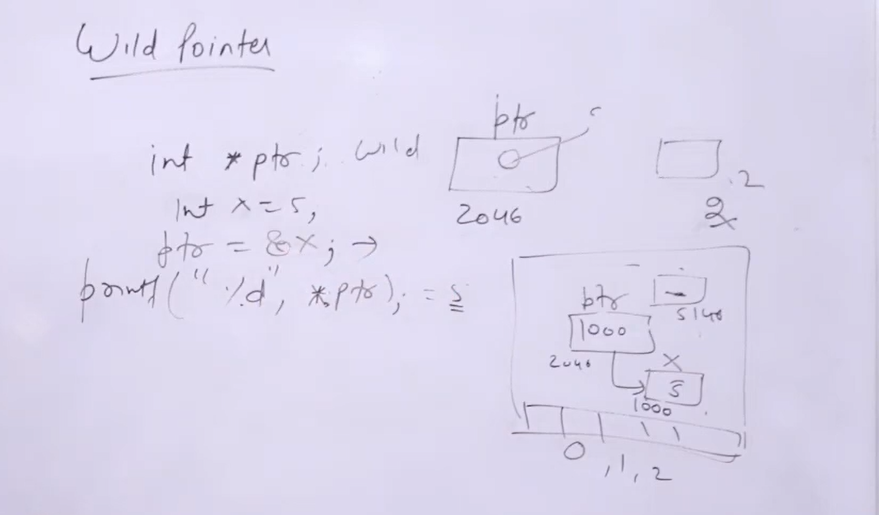 Wild Pointer
int *ptr; wild
int x=5,
ptr = &x; →
printf("%d", *ptr); = 5
ptr
2046
2
2
ptr
1000
2046
5140
x
5
1000
0, 1, 2